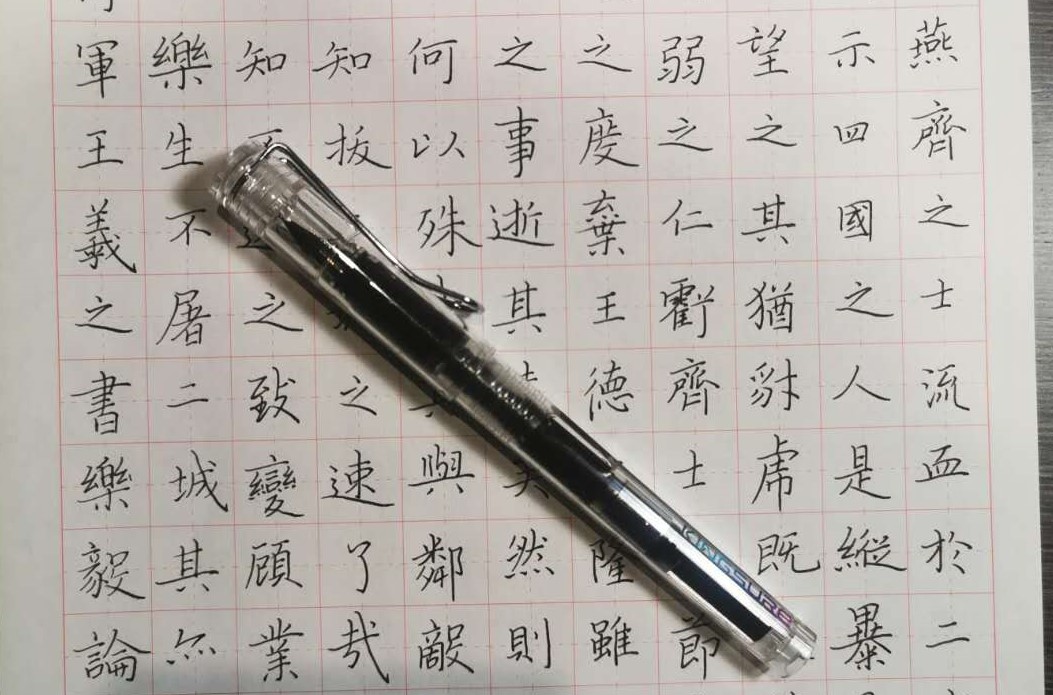 燕齊之士流血於二
示四國之人是縱暴
望之其猶豺虎既
弱之仁虧齊士節
之度棄王德隆雖
之事逝其然則
何以殊與鄰敵
知拔之速了哉
知之致變顧業
樂生不屠二城其亦
軍王羲之書樂毅論
KINGSURE